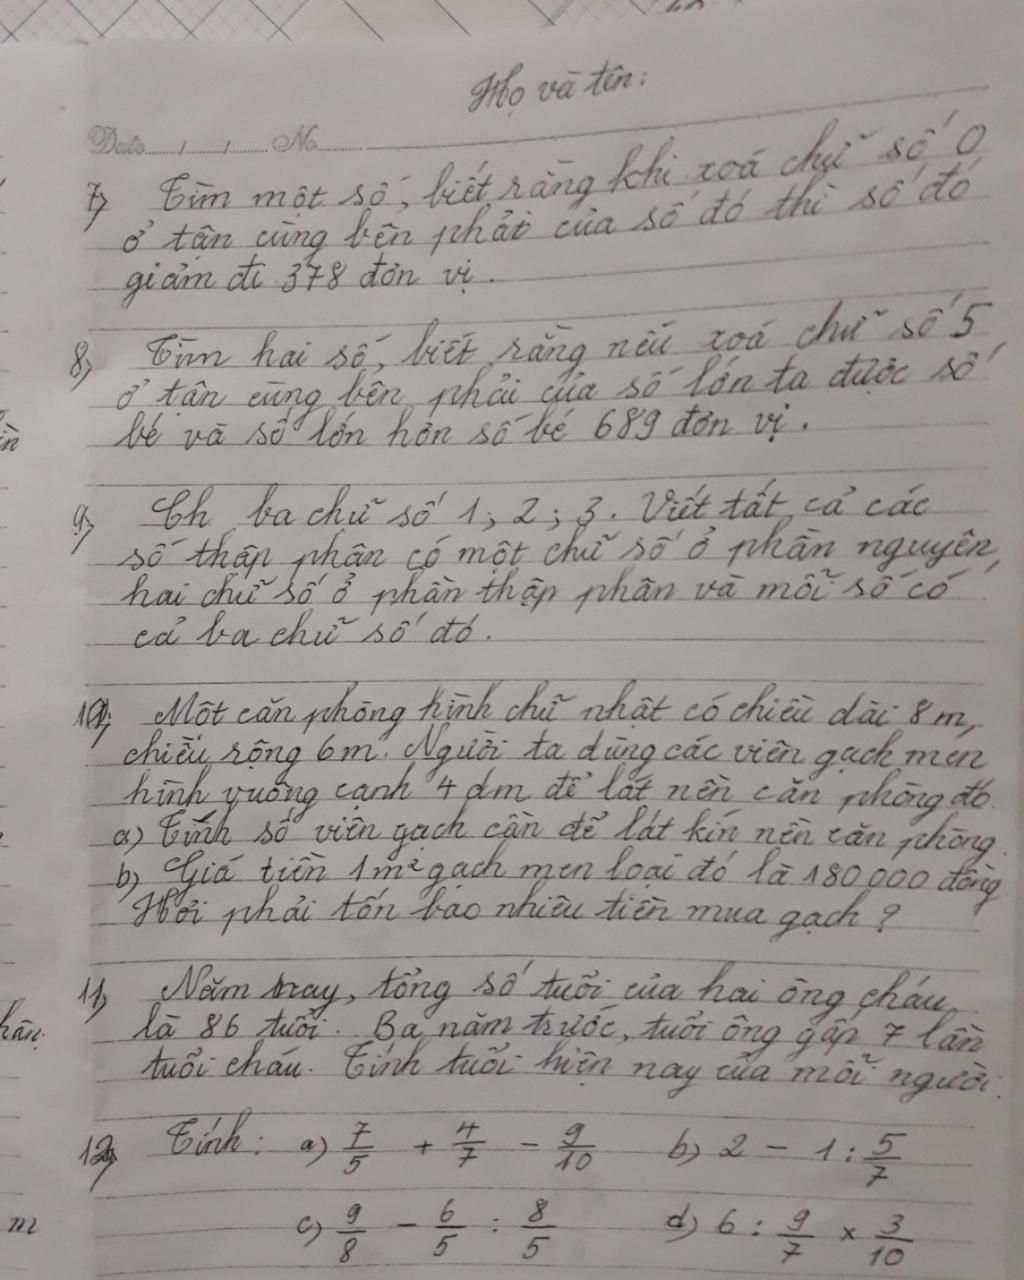 Họ và tên:
Date / / No
7) Tìm một số, biết rằng khi xoá chữ số 0
ở tận cùng bên phải của số đó thì số đó
giảm đi 378 đơn vị.
8) Tìm hai số, biết rằng nếu xoá chữ số 5
ở tận cùng bên phải của số lớn ta được số
bé và số lớn hơn số bé 689 đơn vị.
9) Ch ba chữ số 1; 2; 3. Viết tất cả các
số thập phân có một chữ số ở phần nguyên,
hai chữ số ở phần thập phân và mỗi số có
cả ba chữ số đó.
10) Một căn phòng hình chữ nhật có chiều dài 8m,
chiều rộng 6m. Người ta dùng các viên gạch men
hình vuông cạnh 4 dm để lát nền căn phòng đó.
a) Tính số viên gạch cần để lát kín nền căn phòng.
b) Giá tiền 1m² gạch men loại đó là 180 000 đồng
Hỏi phải tốn bao nhiêu tiền mua gạch?
11) Năm nay, tổng số tuổi của hai ông cháu
là 86 tuổi. Ba năm trước, tuổi ông gấp 7 lần
tuổi cháu. Tính tuổi hiện nay của mỗi người.
12) Tính: a) 7/5 + 4/7 - 9/10 b) 2 - 1 : 5/7
c) 9/8 - 6/5 : 8/5 d) 6 : 9/7 × 3/10
m